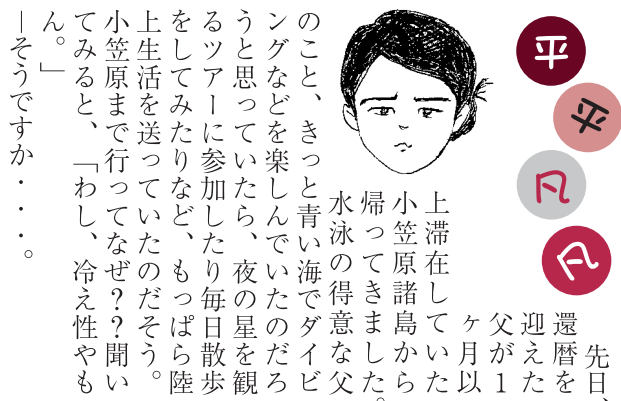 平
平
凡
凡
先日、
還暦を
迎えた
父が１
ヶ月以
上滞在していた
小笠原諸島から
帰ってきました。
水泳の得意な父
のこと、きっと青い海でダイビ
ングなどを楽しんでいたのだろ
うと思っていたら、夜の星を観
るツアーに参加したり毎日散歩
をしてみたりなど、もっぱら陸
上生活を送っていたのだそう。
小笠原まで行ってなぜ？？聞い
てみると、「わし、冷え性やも
ん。」
―そうですか・・・。